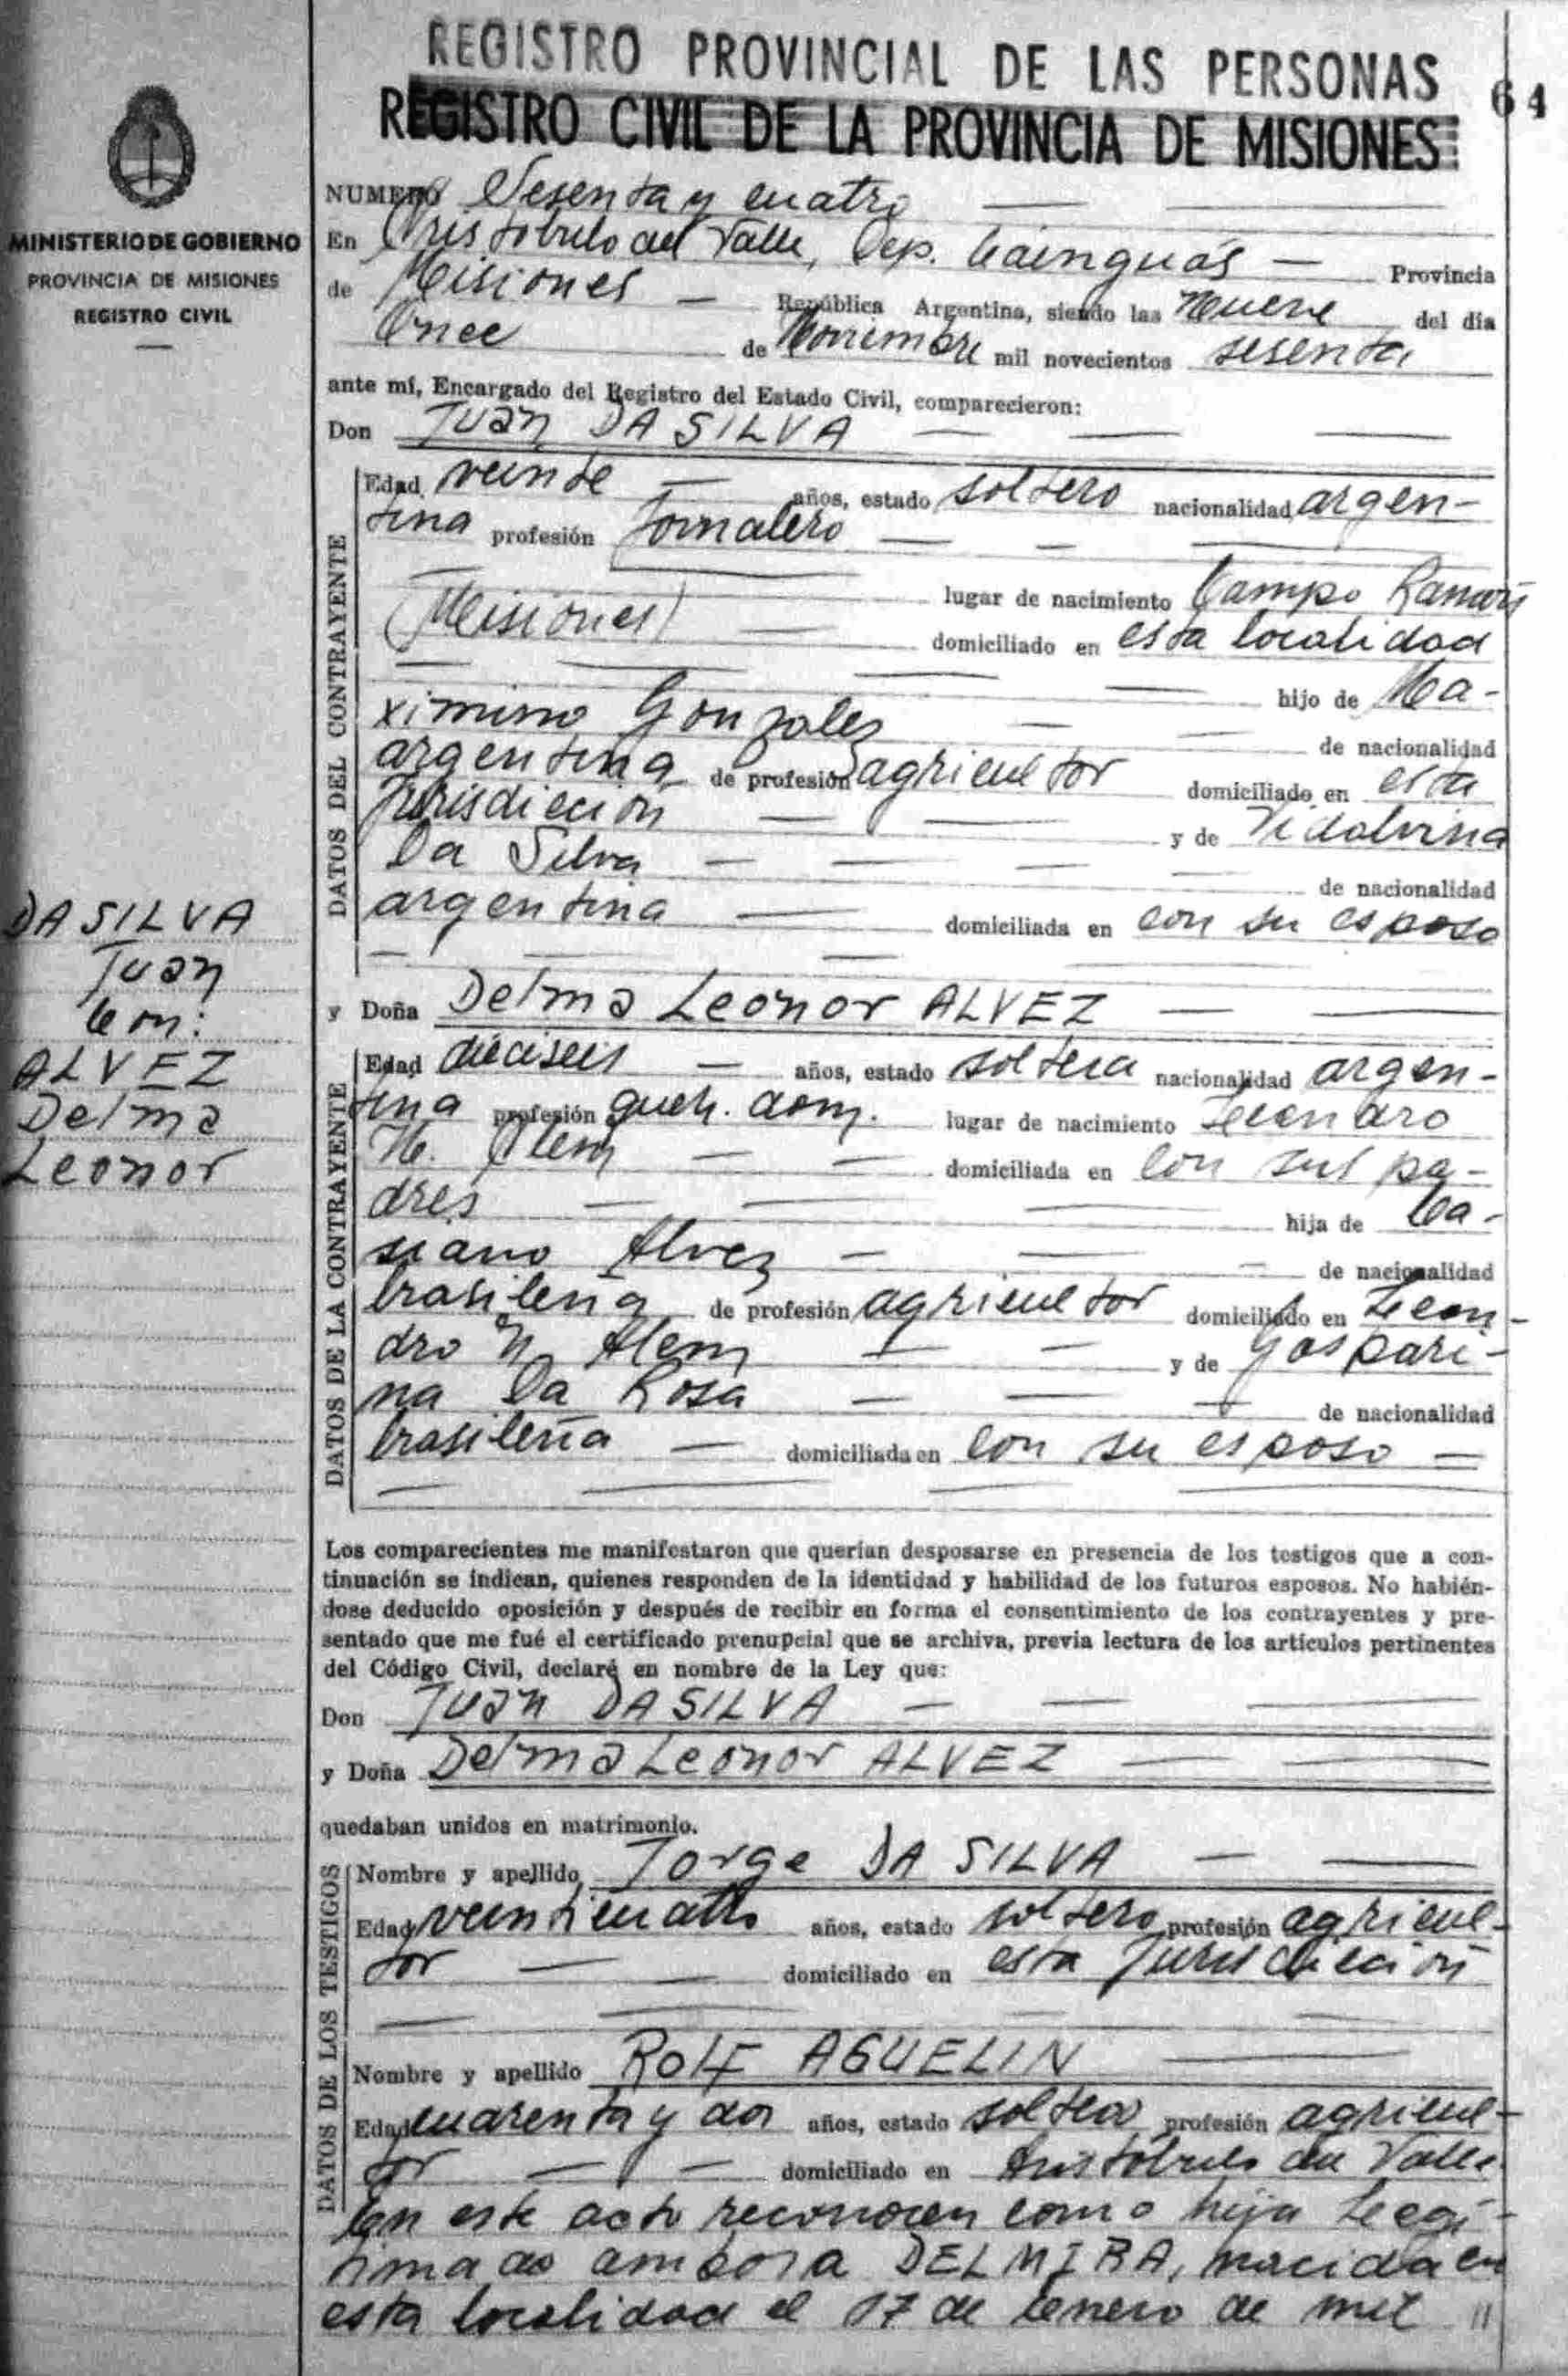 REGISTRO PROVINCIAL DE LAS PERSONAS
REGISTRO CIVIL DE LA PROVINCIA DE MISIONES
64
MINISTERIO DE GOBIERNO
PROVINCIA DE MISIONES
REGISTRO CIVIL
NUMERO Sesenta y cuatro
En Aristobulo del Valle, Dep. Cainguás Provincia
de Misiones República Argentina, siendo las nueve del día
Once de Noviembre mil novecientos sesenta
ante mí, Encargado del Registro del Estado Civil, comparecieron:
Don Juan DA SILVA
DATOS DEL CONTRAYENTE
Edad veinte años, estado soltero nacionalidad argen-
tina profesión Jornalero
lugar de nacimiento Campo Ramón
(Misiones) domiciliado en esta localidad
hijo de Ma-
ximino Gonzalez de nacionalidad
argentina de profesión agricultor domiciliado en esta
Jurisdiccion y de Vidalvina
Da Silva de nacionalidad
argentina domiciliada en con su esposo
DA SILVA
Juan
Con:
ALVEZ
Delma
Leonor
y Doña Delma Leonor ALVEZ
DATOS DE LA CONTRAYENTE
Edad dieciseis años, estado soltera nacionalidad argen-
tina profesión queh. dom. lugar de nacimiento Leandro
N. Alem domiciliada en con sus pa-
dres hija de Ca-
siano Alvez de nacionalidad
brasileña de profesión agricultor domiciliado en Lean-
dro N. Alem y de Gaspari-
na Da Rosa de nacionalidad
brasileña domiciliada en con su esposo
Los comparecientes me manifestaron que querían desposarse en presencia de los testigos que a con-
tinuación se indican, quienes responden de la identidad y habilidad de los futuros esposos. No habién-
dose deducido oposición y después de recibir en forma el consentimiento de los contrayentes y pre-
sentado que me fué el certificado prenupcial que se archiva, previa lectura de los artículos pertinentes
del Código Civil, declaré en nombre de la Ley que:
Don Juan DA SILVA
y Doña Delma Leonor ALVEZ
quedaban unidos en matrimonio.
DATOS DE LOS TESTIGOS
Nombre y apellido Jorge DA SILVA
Edad veinticuatro años, estado soltero profesión agricul-
tor domiciliado en esta Jurisdiccion
Nombre y apellido Rolf AGUELIN
Edad cuarenta y dos años, estado soltero profesión agricul-
tor domiciliado en Aristobulo del Valle
En este acto reconocen como hija Legi-
tima de ambos a DELMIRA, nacida en
esta localidad el 17 de Enero de mil //